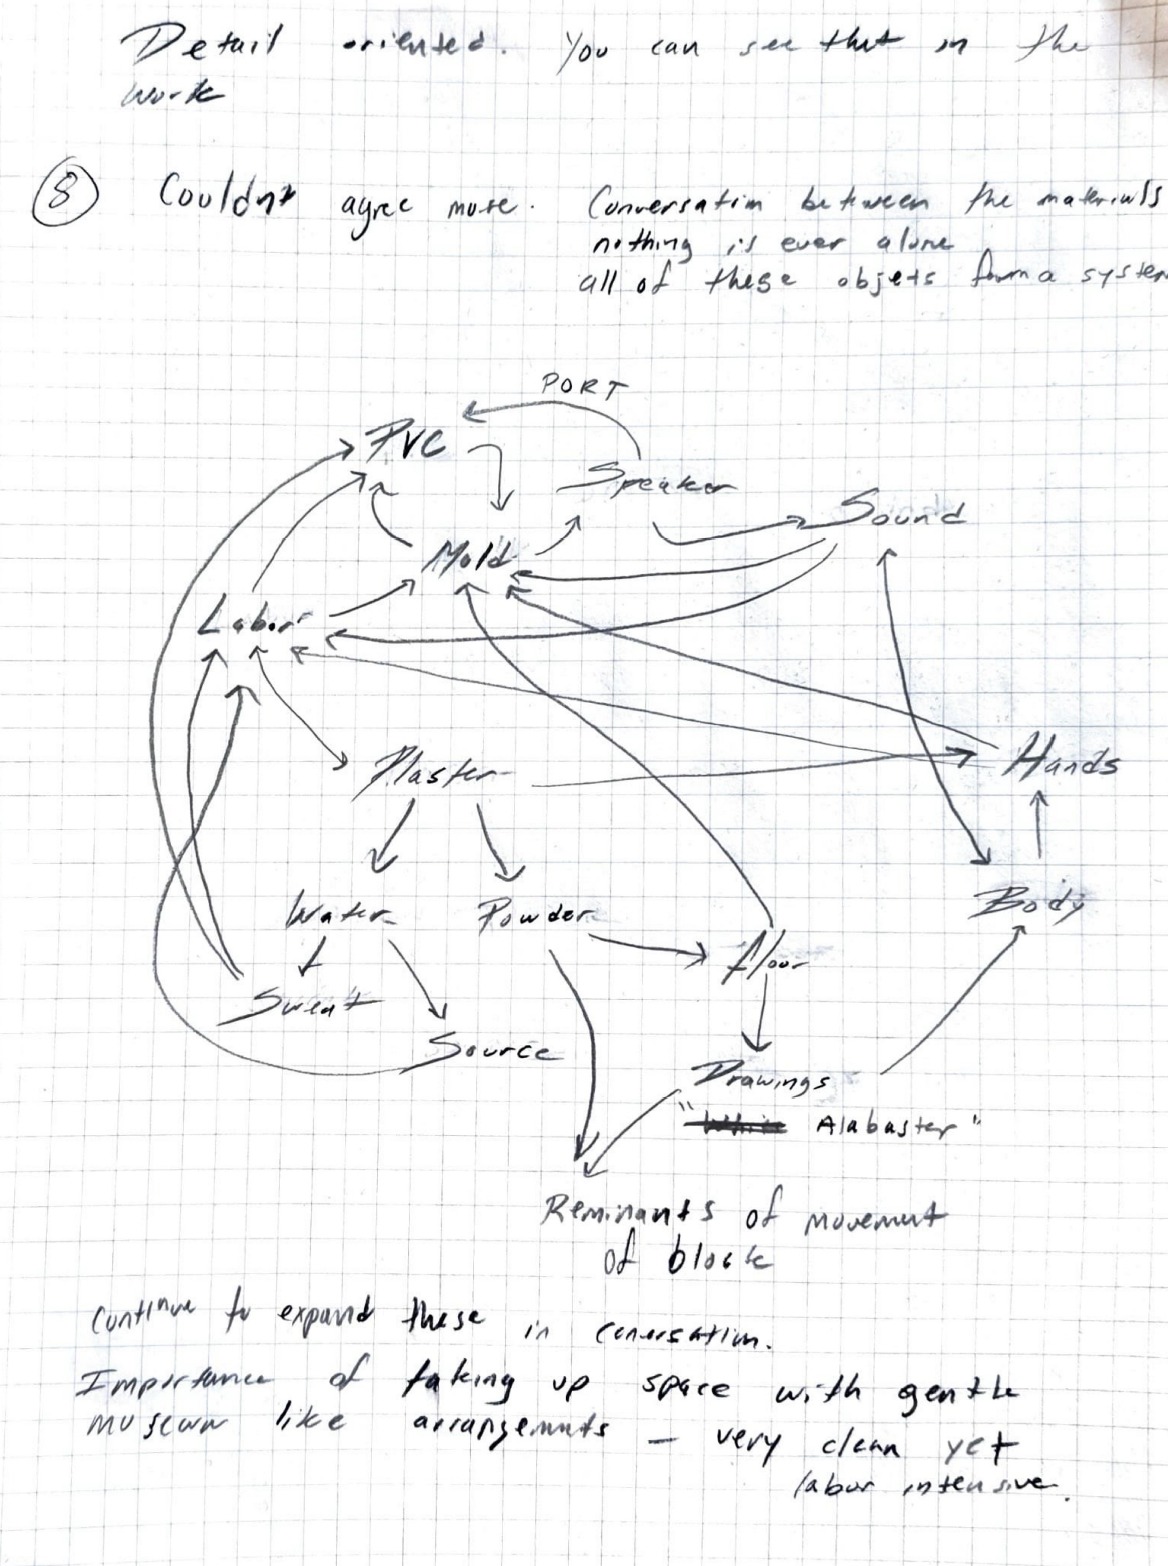 Detail oriented. You can see that in the
work
⑧ Couldnt agree more. Conversation between the materials
nothing is ever alone
all of these objets form a system
PORT
PVC
Speaker
Sound
Mold
Labor
Plaster
Hands
Water
Powder
Body
floor
Sweat
Source
Drawings
"White Alabaster"
Reminants of movement
of block
Continue to expand these in conversation.
Importance of taking up space with gentle
museum like arrangements – very clean yet
labor intensive.